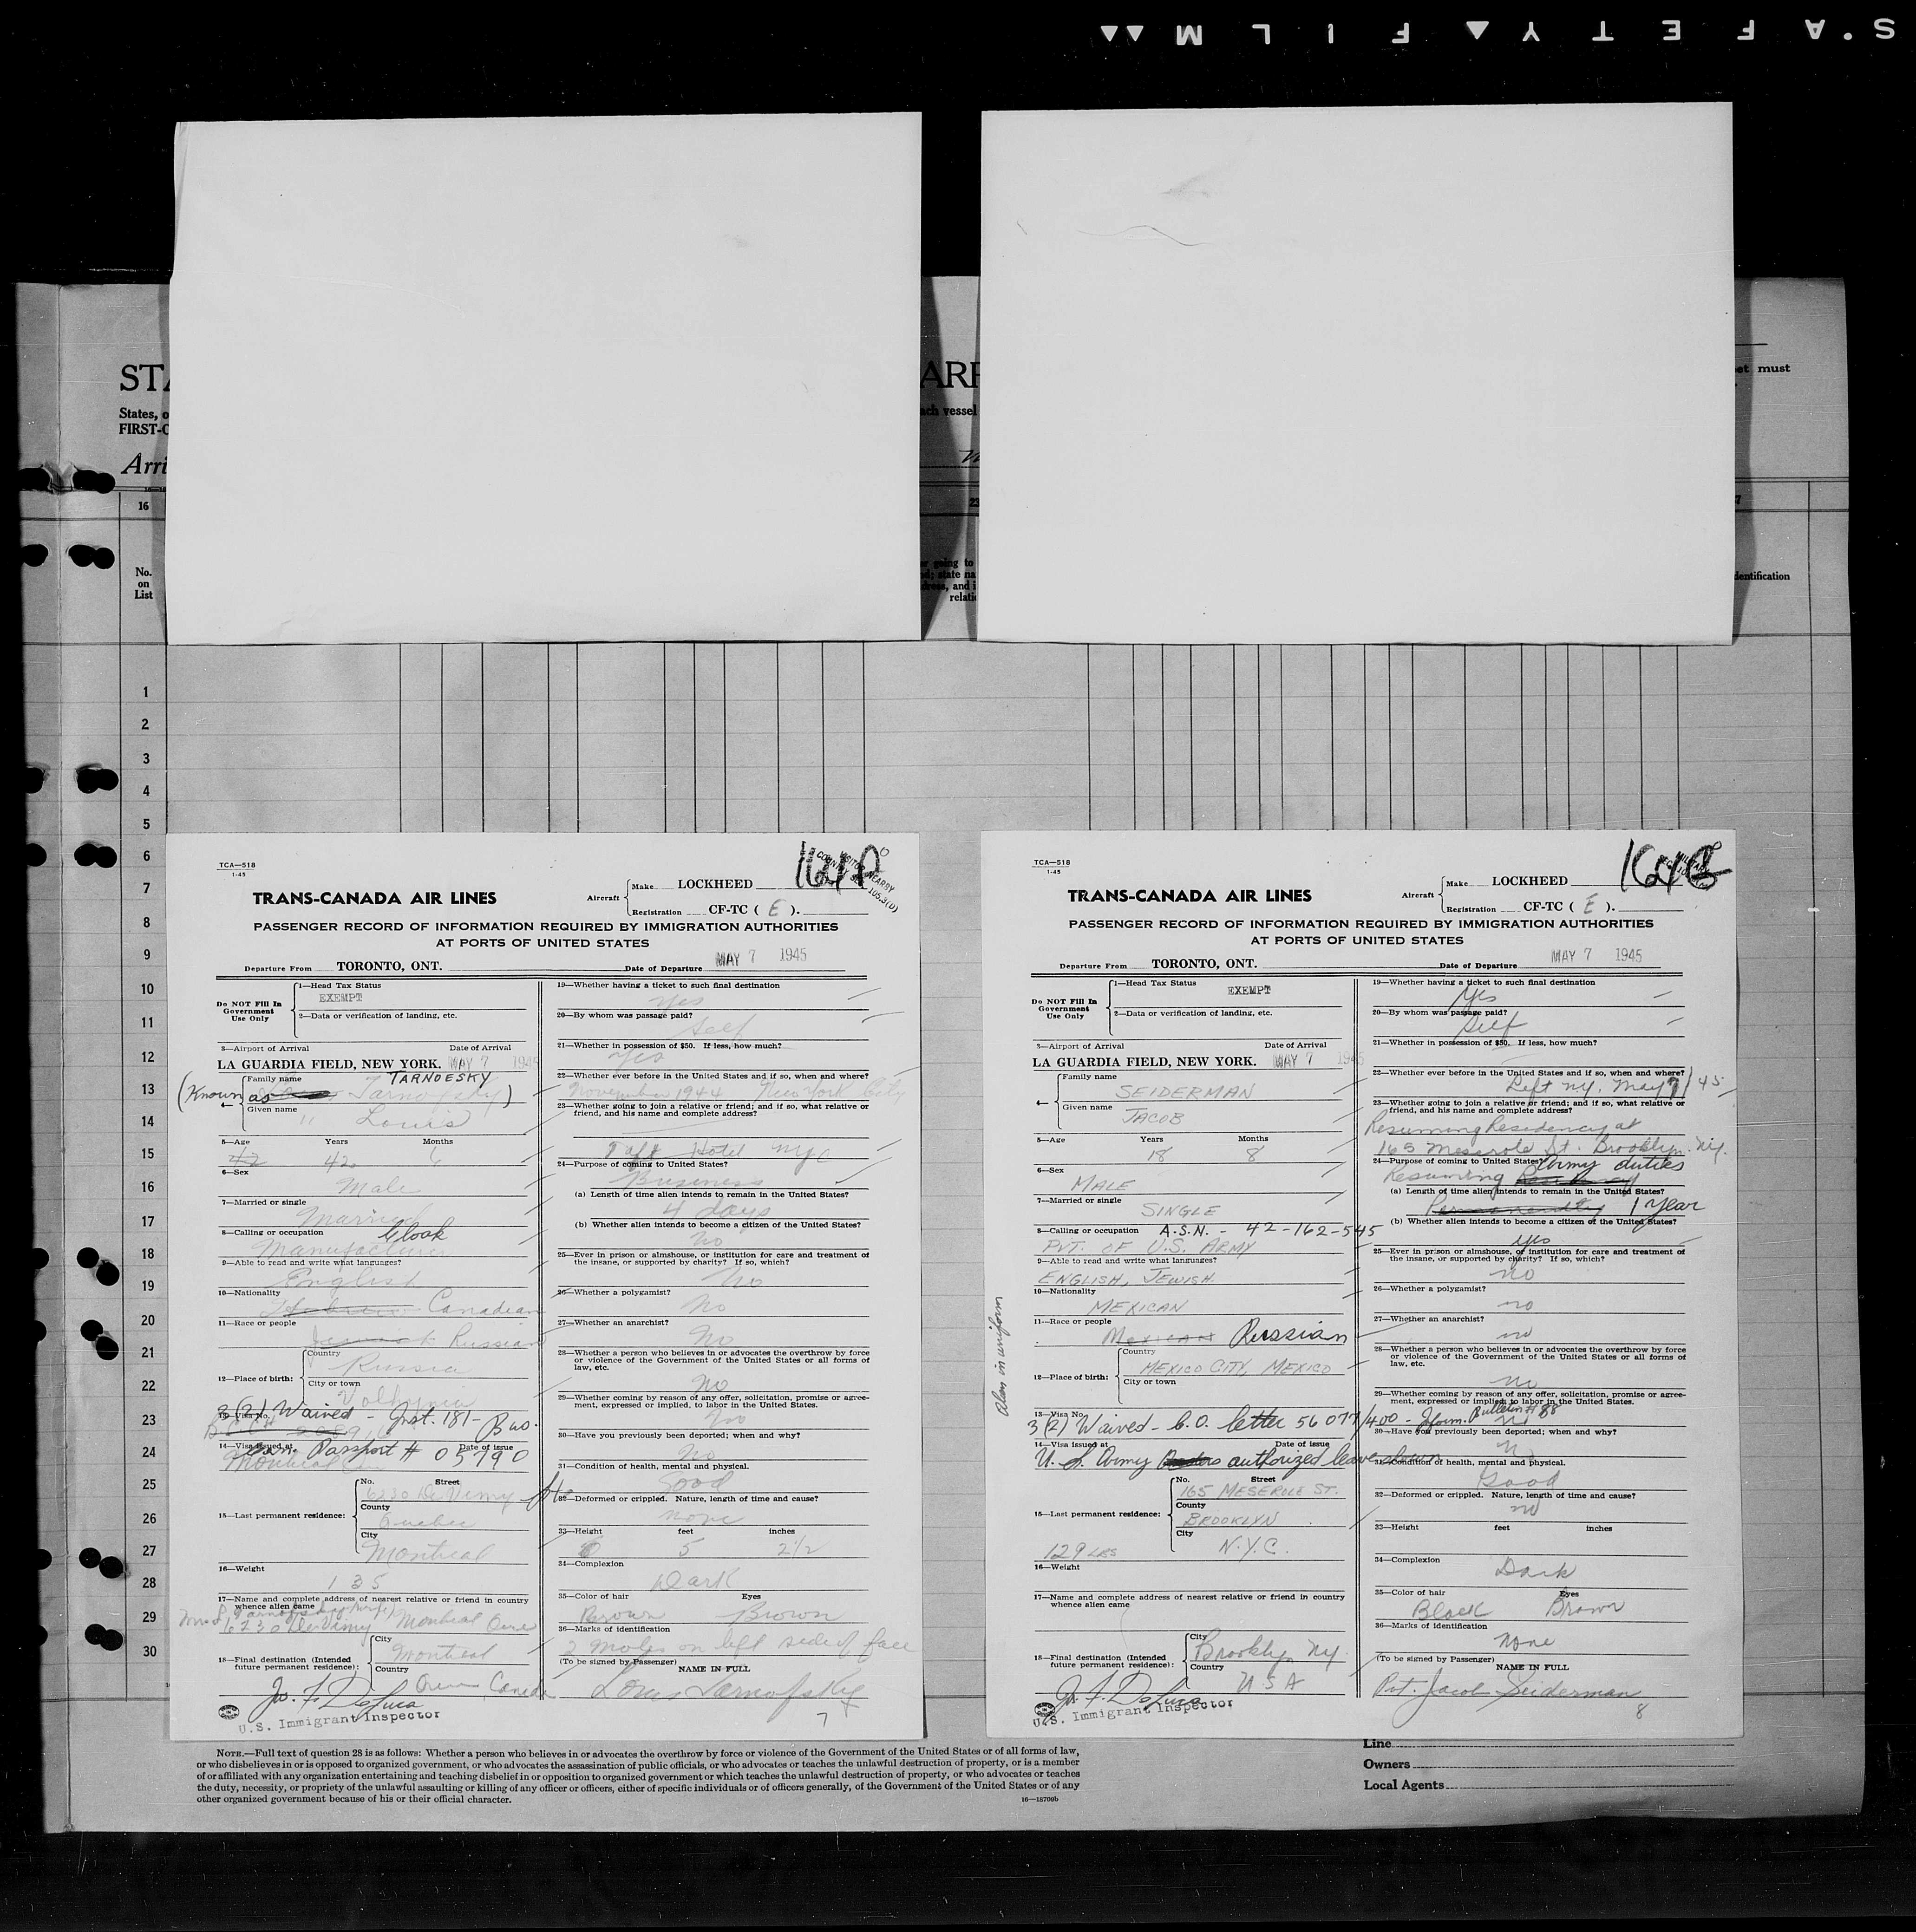 S.AFETY▲FILM▲▲
STA
ARR
et must
States, o
ach vessel
FIRST-C
Arri
16
No.
on
List
r going to
relati
dentification
1
2
3
4
5
6
7
8
9
10
11
12
13
14
15
16
17
18
19
20
21
22
23
24
25
26
27
28
29
30
TCA—518
1-45
TRANS-CANADA AIR LINES
Aircraft
Make LOCKHEED
Registration CF-TC ( E ).
PASSENGER RECORD OF INFORMATION REQUIRED BY IMMIGRATION AUTHORITIES
AT PORTS OF UNITED STATES
Departure From TORONTO, ONT. Date of Departure MAY 7 1945
Do NOT Fill In
Government
Use Only
1—Head Tax Status
EXEMPT
2—Data or verification of landing, etc.
3—Airport of Arrival Date of Arrival
LA GUARDIA FIELD, NEW YORK. MAY 7 1945
Family name TARNOESKY
(Known as Tarnofsky)
4—
Given name
" Louis
5—Age Years Months
42 42
6—Sex
Male
7—Married or single
Married
8—Calling or occupation Cloak
Manufacturer
9—Able to read and write what languages?
English
10—Nationality
Canadian
11—Race or people
Jewish Russian
12—Place of birth:
Country
Russia
City or town
Volhynia
13—Visa No.
3 (2) Waived - Inst. 181- Bwo.
14—Visa issued at Date of issue
Can. Passport # 05790
Montreal
15—Last permanent residence:
No. Street
6230 De Vimy
County
Quebec
City
Montreal
16—Weight
135
17—Name and complete address of nearest relative or friend in country
whence alien came
Mrs L Tarnofsky (wife)
6230 De Vimy Montreal Que
18—Final destination (Intended
future permanent residence):
City
Montreal
Country
Que Canada
Jo. F. DeLuca
U.S. Immigrant Inspector
19—Whether having a ticket to such final destination
yes
20—By whom was passage paid?
Self
21—Whether in possession of $50. If less, how much?
yes
22—Whether ever before in the United States and if so, when and where?
November 1944 New York City
23—Whether going to join a relative or friend; and if so, what relative or
friend, and his name and complete address?
Taft Hotel nyc
24—Purpose of coming to United States?
Business
(a) Length of time alien intends to remain in the United States?
4 days
(b) Whether alien intends to become a citizen of the United States?
no
25—Ever in prison or almshouse, or institution for care and treatment of
the insane, or supported by charity? If so, which?
no
26—Whether a polygamist?
no
27—Whether an anarchist?
no
28—Whether a person who believes in or advocates the overthrow by force
or violence of the Government of the United States or all forms of
law, etc.
no
29—Whether coming by reason of any offer, solicitation, promise or agree-
ment, expressed or implied, to labor in the United States.
no
30—Have you previously been deported; when and why?
no
31—Condition of health, mental and physical.
Good
32—Deformed or crippled. Nature, length of time and cause?
none
33—Height feet inches
5 2½
34—Complexion
Dark
35—Color of hair Eyes
Brown Brown
36—Marks of identification
2 moles on left side of face
(To be signed by Passenger) NAME IN FULL
Louis Tarnofsky
7
TCA—518
1-45
TRANS-CANADA AIR LINES
Aircraft
Make LOCKHEED
Registration CF-TC ( E ).
PASSENGER RECORD OF INFORMATION REQUIRED BY IMMIGRATION AUTHORITIES
AT PORTS OF UNITED STATES
Departure From TORONTO, ONT. Date of Departure MAY 7 1945
Do NOT Fill In
Government
Use Only
1—Head Tax Status
EXEMPT
2—Data or verification of landing, etc.
3—Airport of Arrival Date of Arrival
LA GUARDIA FIELD, NEW YORK. MAY 7 1945
4—
Family name
SEIDERMAN
Given name
JACOB
5—Age Years Months
18 8
6—Sex
MALE
7—Married or single
SINGLE
8—Calling or occupation A.S.N. - 42-162-545
PVT. OF U.S. ARMY
9—Able to read and write what languages?
ENGLISH, JEWISH
10—Nationality
MEXICAN
11—Race or people
MEXICAN Russian
12—Place of birth:
Country
MEXICO CITY, MEXICO
City or town
Alien in uniform
13—Visa No.
3 (2) Waived - C.O. letter 56077/400 - Inform. Bulletin # 88
14—Visa issued at Date of issue
U. S. Army authorized leave
15—Last permanent residence:
No. Street
165 MESEROLE ST.
County
BROOKLYN
City
N.Y.C.
129 LBS
16—Weight
17—Name and complete address of nearest relative or friend in country
whence alien came
18—Final destination (Intended
future permanent residence):
City
Brooklyn Ny.
Country
U.S.A
Jo. F. DeLuca
U.S. Immigrant Inspector
19—Whether having a ticket to such final destination
Yes
20—By whom was passage paid?
Self
21—Whether in possession of $50. If less, how much?
22—Whether ever before in the United States and if so, when and where?
Left ny. May 7/45
23—Whether going to join a relative or friend; and if so, what relative or
friend, and his name and complete address?
Resuming Residency at
165 Meserole St. Brooklyn. Ny.
24—Purpose of coming to United States?
Resuming Army duties
(a) Length of time alien intends to remain in the United States?
Permanently 1 year
(b) Whether alien intends to become a citizen of the United States?
yes
25—Ever in prison or almshouse, or institution for care and treatment of
the insane, or supported by charity? If so, which?
no
26—Whether a polygamist?
no
27—Whether an anarchist?
no
28—Whether a person who believes in or advocates the overthrow by force
or violence of the Government of the United States or all forms of
law, etc.
no
29—Whether coming by reason of any offer, solicitation, promise or agree-
ment, expressed or implied, to labor in the United States.
no
30—Have you previously been deported; when and why?
no
31—Condition of health, mental and physical.
Good
32—Deformed or crippled. Nature, length of time and cause?
no
33—Height feet inches
34—Complexion
Dark
35—Color of hair Eyes
Black Brown
36—Marks of identification
None
(To be signed by Passenger) NAME IN FULL
Pvt. Jacob Seiderman
8
NOTE.—Full text of question 28 is as follows: Whether a person who believes in or advocates the overthrow by force or violence of the Government of the United States or of all forms of law,
or who disbelieves in or is opposed to organized government, or who advocates the assassination of public officials, or who advocates or teaches the unlawful destruction of property, or is a member
of or affiliated with any organization entertaining and teaching disbelief in or opposition to organized government or which teaches the unlawful destruction of property, or who advocates or teaches
the duty, necessity, or propriety of the unlawful assaulting or killing of any officer or officers, either of specific individuals or of officers generally, of the Government of the United States or of any
other organized government because of his or their official character.
16—18709b
Line
Owners
Local Agents